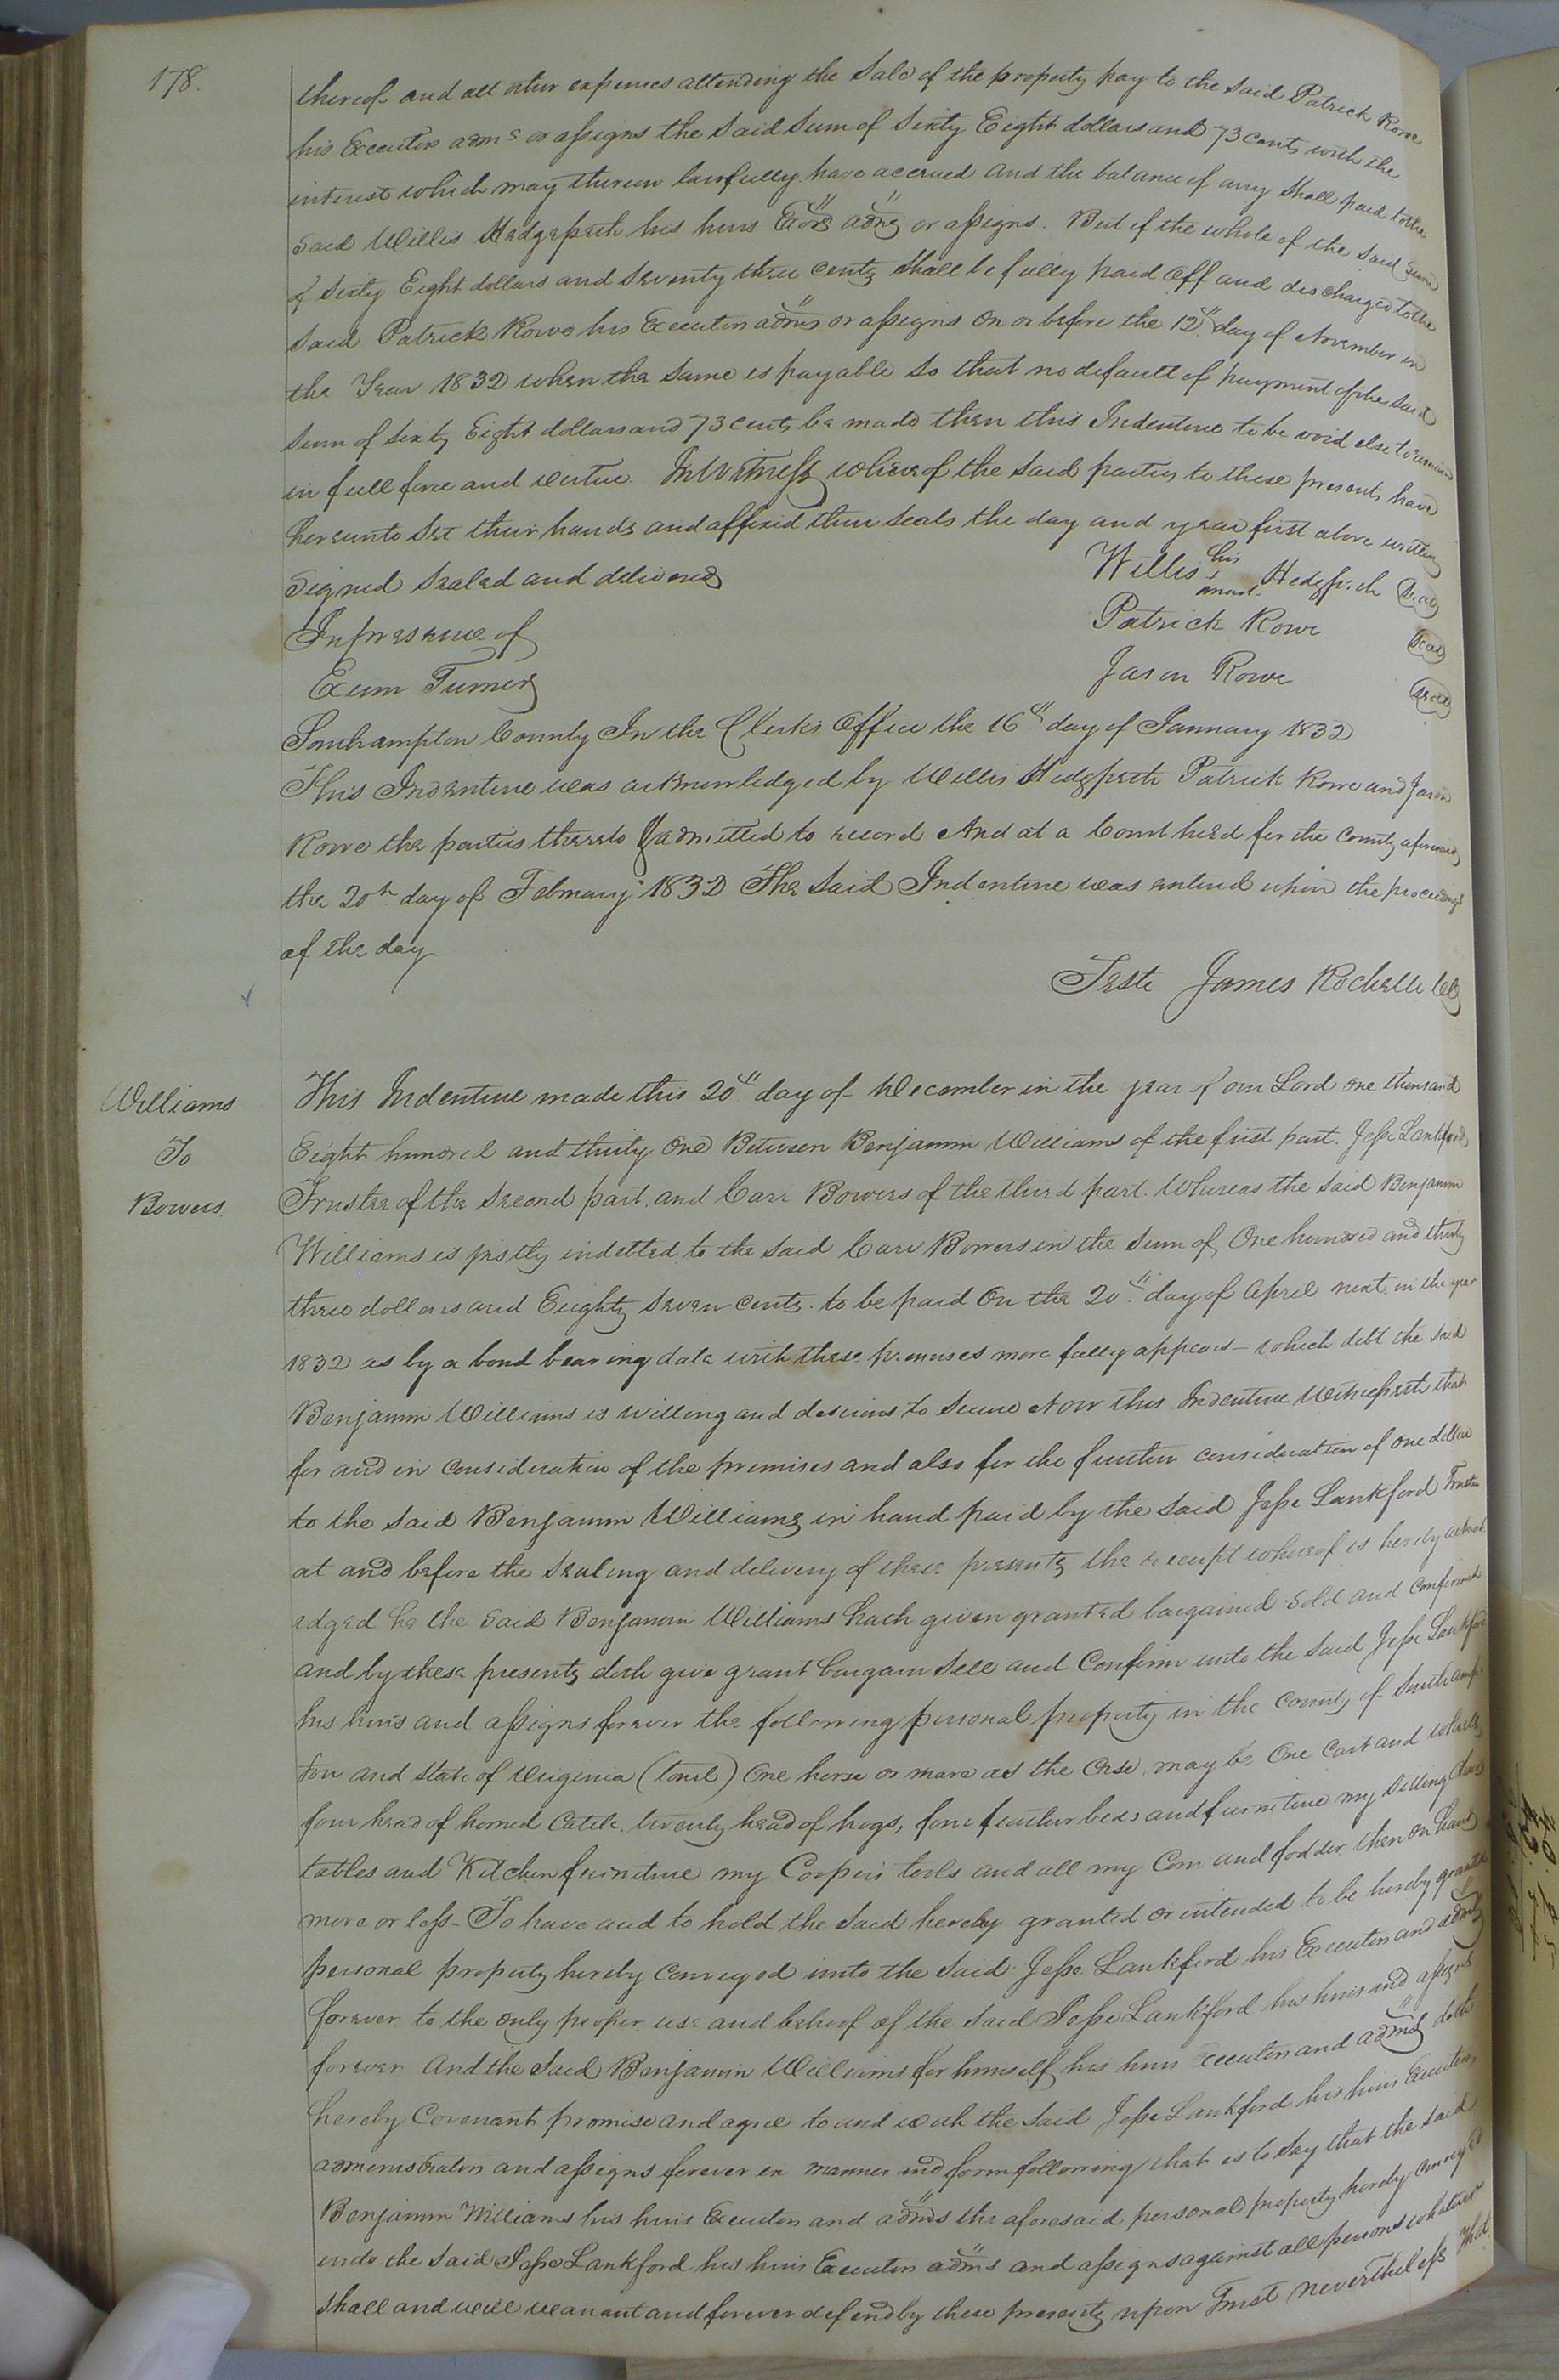 178.
thereof and all other expences attending the Sale of the property pay to the said Patrick Rowe
his Executors adms or assigns the said Sum of Sixty Eight dollars and 73 cents with the
interest which may thereon lawfully have accrued and the balance if any shall paid to the
said Willis Hedgepeth his heirs Exors adms or assigns. But if the whole of the said Sum
of Sixty Eight dollars and Seventy three cents shall be fully paid off and discharged to the
said Patrick Rowe his Executors adms or assigns on or before the 12th day of November in
the Year 1832 when the same is payable so that no default of payment of the said
Sum of Sixty Eight dollars and 73 cents be made then this Indenture to be void else to remain
in full force and virtue. In Witness whereof the said parties to these presents have
hereunto set their hands and affixed their seals the day and year first above written
Signed Sealed and delivered
Willis his + mark Hedgpeth Seal
In presence of
Patrick Rowe Seal
Exum Turner
Jason Rowe Seal
Southampton County In the Clerk's Office the 16th day of January 1832
This Indenture was acknowledged by Willis Hedgpeth Patrick Rowe and Jason
Rowe the parties thereto & admitted to record And at a Court held for the County aforesaid
the 20th day of February 1832 The said Indenture was entered upon the proceedings
of the day
Teste James Rochelle Clk
Williams
To
Bowers
This Indenture made this 20th day of December in the year of our Lord one thousand
Eight hundred and thirty one Between Benjamin Williams of the first part. Jesse Lankford
Trustee of the second part. and Carr Bowers of the third part. Whereas the said Benjamin
Williams is justly indetted to the said Carr Bowers in the sum of One hundred and thirty
three dollars and Eighty seven cents. to be paid on the 20th day of April next in the year
1832 as by a bond bearing date with these premises more fully appears - which debt the said
Benjamin Williams is willing and desirous to secure Now this Indenture Witnesseth that
for and in consideration of the premises and also for the further consideration of one dollar
to the said Benjamin Williams in hand paid by the said Jesse Lankford Trustee
at and before the sealing and delivery of these presents the receipt whereof is hereby acknowl
edged he the said Benjamin Williams hath given granted bargained sold and confirmed
and by these presents doth give grant bargain sell and Confirm unto the said Jesse Lankford
his heirs and assigns forever the following personal property in the County of Southamp
ton and State of Virginia (towit) One horse or mare as the case may be One Cart and wheels
four head of horned Cattle. twenty head of hogs, four feather beds and furniture my Silling Chairs
tables and Kitchen furniture my Coopers tools and all my Corn and fodder then on hand
more or less - To have and to hold the said hereby granted or intended to be hereby granted
personal property hereby conveyed unto the said Jesse Lankford his Executors and adms
forever. to the only proper use and behoof of the said Jesse Lankford his heirs and assigns
forever And the said Benjamin Williams for himself his heirs Executors and adms doth
hereby Covenant promise and agree to and with the said Jesse Lankford his heirs Executors
administrators and assigns forever in manner and form following, that is to say that the said
Benjamin Williams his heirs Executors and adms the aforesaid personal property hereby conveyed
unto the said Jesse Lankford his heirs Executors adms and assigns against all persons whatever
shall and will warrant and forever defend by these presents upon Trust nevertheless that